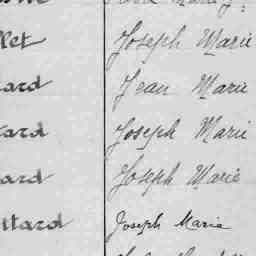 llet Joseph Marie
tard Jean Marie
tard Joseph Marie
ard Joseph Marie
ttard Joseph Marie